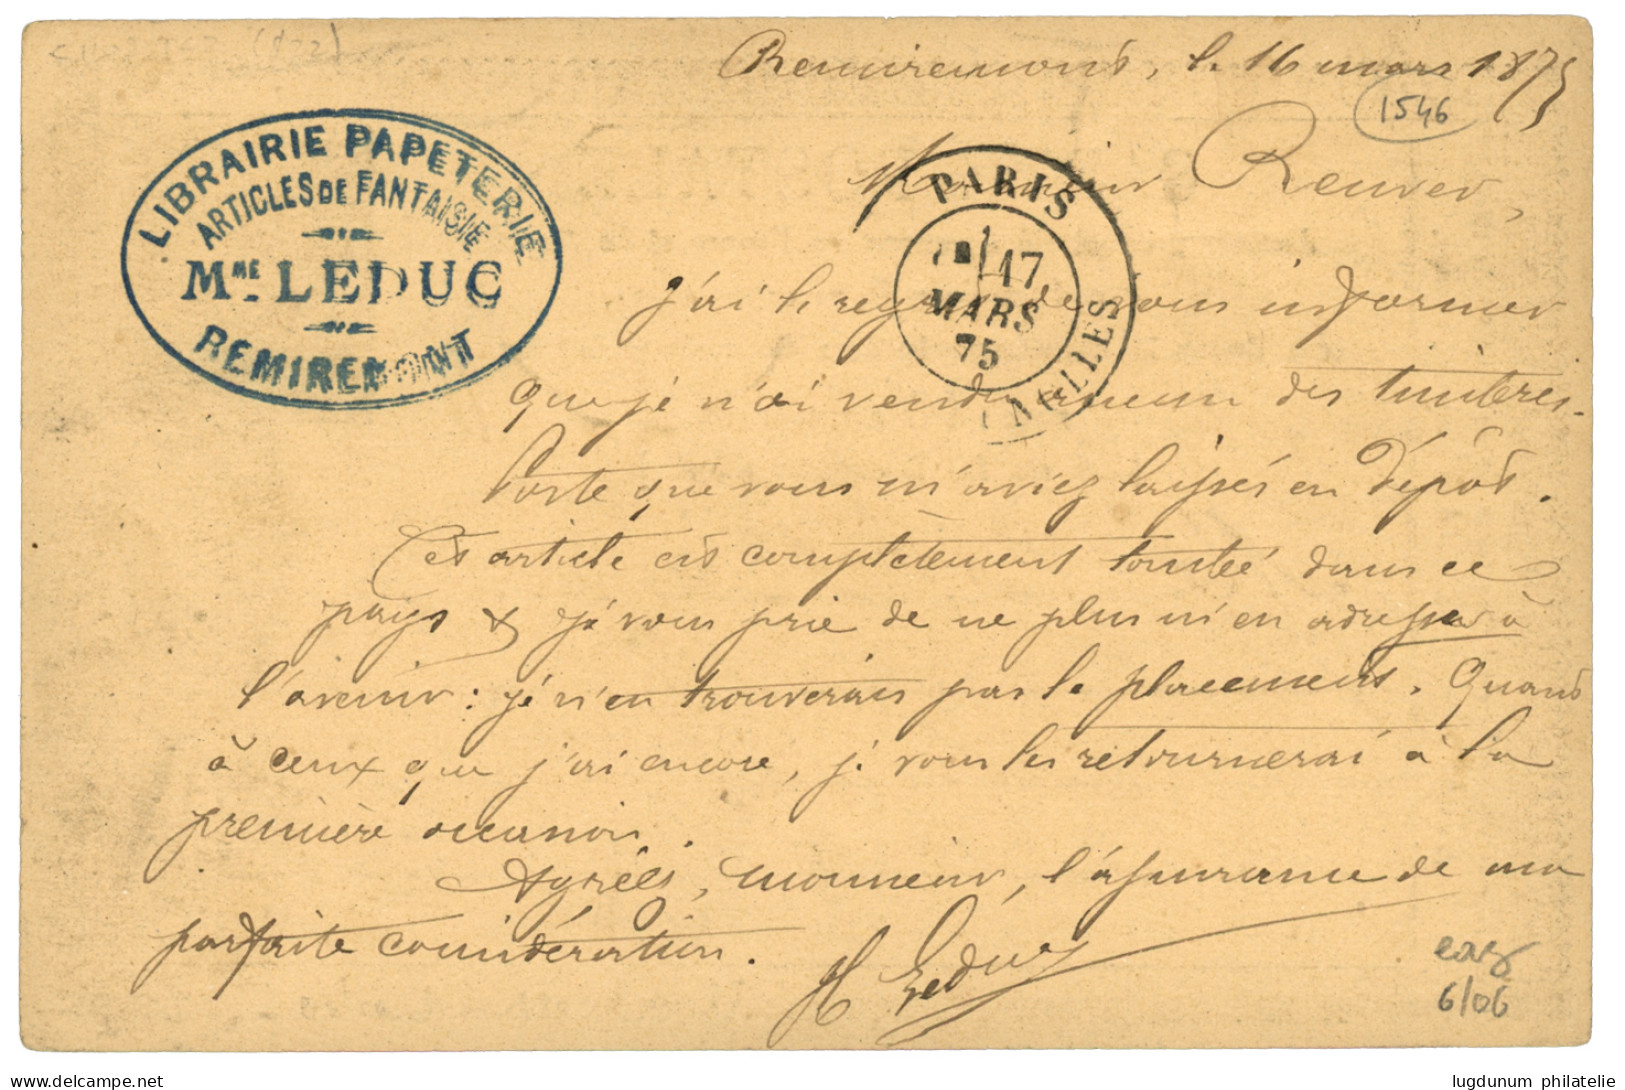 Remiremont, le 16 mars 1875
1546
LIBRAIRIE PAPETERIE
ARTICLES DE FANTAISIE
MME LEDUC
REMIREMONT
Monsieur Reuver,
PARIS
17
MARS
75
j'ai le regret de vous informer
que je n'ai vendu aucun des timbres-
Poste que vous m'aviez laissés en Dépôt.
Cet article est complètement tombé dans ce
pays & je vous prie de ne plus m'en adresser à
l'avenir : je n'en trouverais pas le placement. Quant
à ceux que j'ai encore, je vous les retournerai à la
première occasion.
Agréez, monsieur, l'assurance de ma
parfaite considération.
H Leduc
6/06
lugdunum philatelie